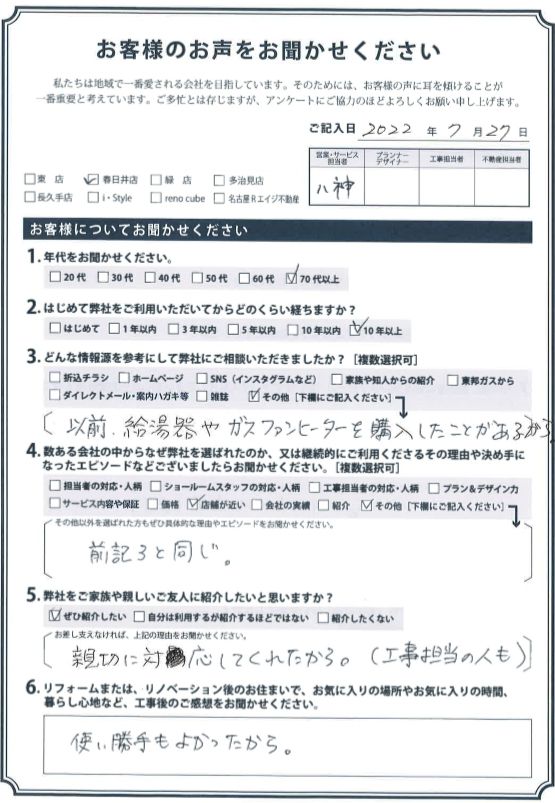 お客様のお声をお聞かせください
私たちは地域で一番愛される会社を目指しています。そのためには、お客様の声に耳を傾けることが
一番重要と考えています。ご多忙とは存じますが、アンケートにご協力のほどよろしくお願い申し上げます。
ご記入日 2022 年 7 月 27 日
営業・サービス担当者 プランナーデザイナー 工事担当者 不動産担当者
八神
□東 店 ☑春日井店 □緑 店 □多治見店
□長久手店 □i・Style □reno cube □名古屋Rエイジ不動産
お客様についてお聞かせください
1. 年代をお聞かせください。
□20代 □30代 □40代 □50代 □60代 ☑70代以上
2. はじめて弊社をご利用いただいてからどのくらい経ちますか?
□はじめて □1年以内 □3年以内 □5年以内 □10年以内 ☑10年以上
3. どんな情報源を参考にして弊社にご相談いただきましたか?[複数選択可]
□折込チラシ □ホームページ □SNS(インスタグラムなど) □家族や知人からの紹介 □東邦ガスから
□ダイレクトメール・案内ハガキ等 □雑誌 ☑その他[下欄にご記入ください]
以前、給湯器やガスファンヒーターを購入したことがあるから
4. 数ある会社の中からなぜ弊社を選ばれたのか、又は継続的にご利用くださるその理由や決め手に
なったエピソードなどございましたらお聞かせください。[複数選択可]
□担当者の対応・人柄 □ショールームスタッフの対応・人柄 □工事担当者の対応・人柄 □プラン&デザイン力
□サービス内容や保証 □価格 ☑店舗が近い □会社の実績 □紹介 ☑その他[下欄にご記入ください]
その他以外を選ばれた方もぜひ具体的な理由やエピソードをお聞かせください。
前記3と同じ。
5. 弊社をご家族や親しいご友人に紹介したいと思いますか?
☑ぜひ紹介したい □自分は利用するが紹介するほどではない □紹介したくない
お差し支えなければ、上記の理由をお聞かせください。
親切に対応してくれたから。(工事担当の人も)
6. リフォームまたは、リノベーション後のお住まいで、お気に入りの場所やお気に入りの時間、
暮らし心地など、工事後のご感想をお聞かせください。
使い勝手もよかったから。